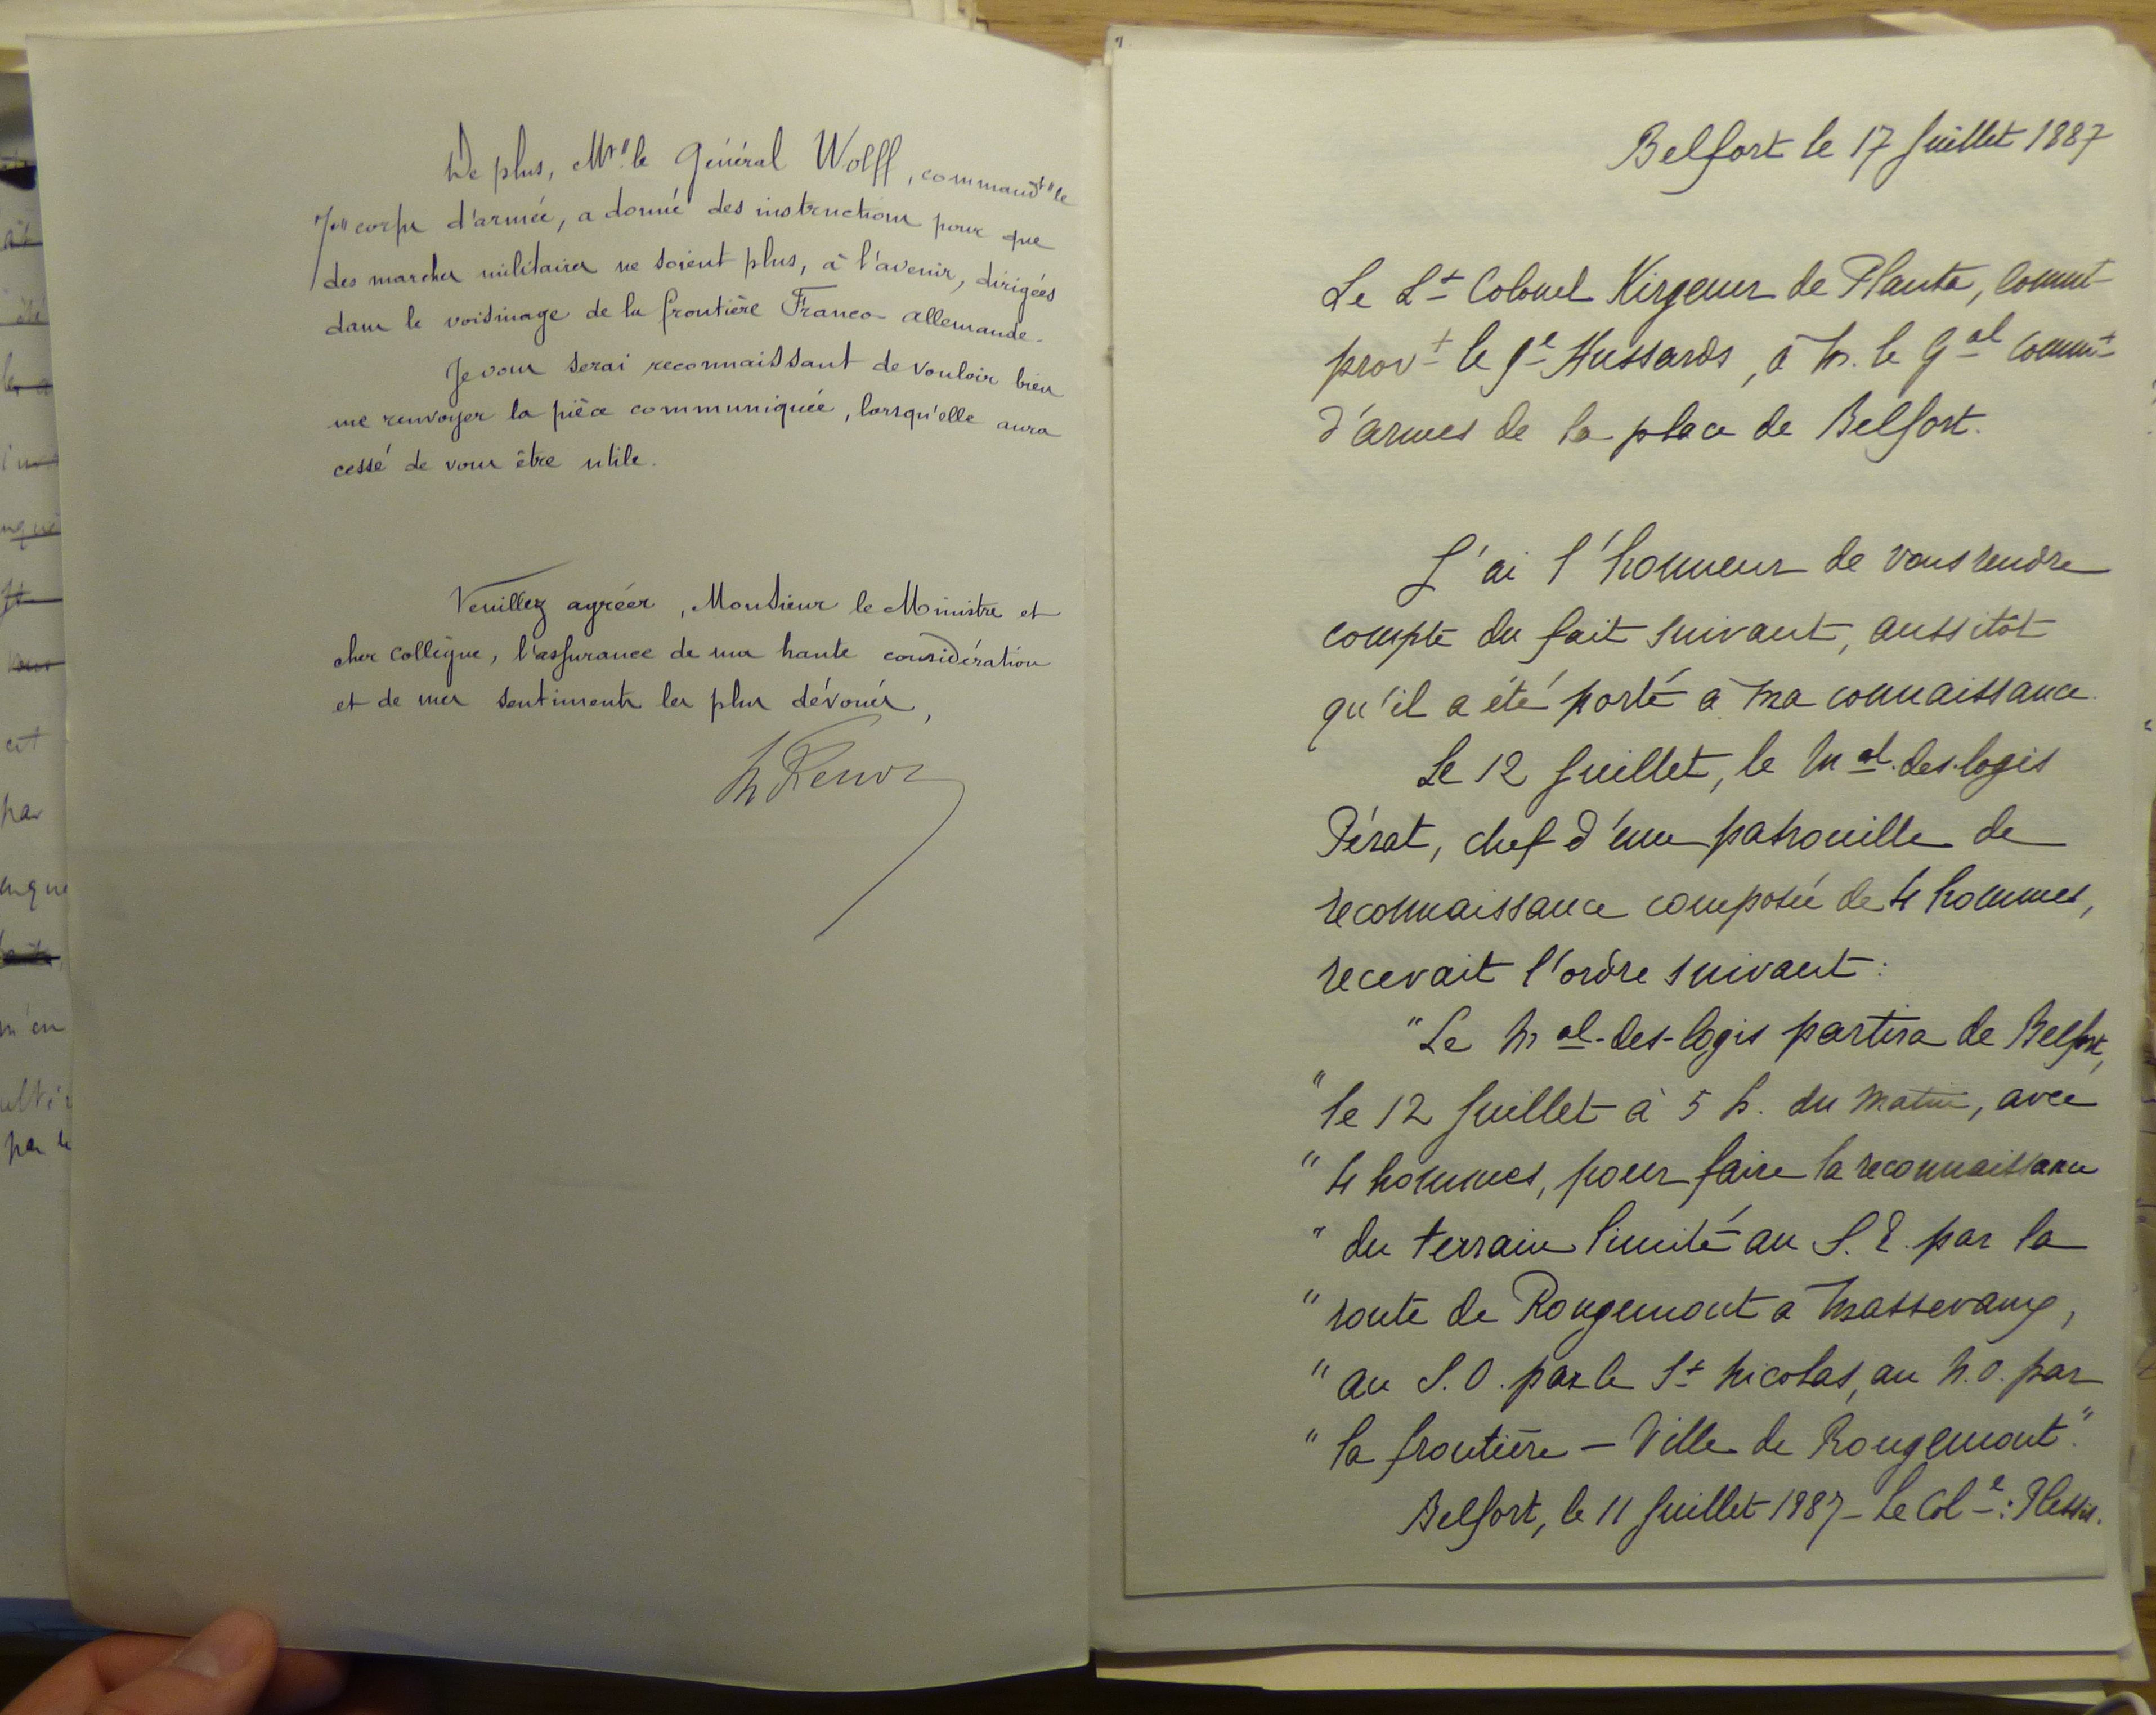 De plus, Mr. le Général Wolff, commandt le
7e corps d'armée, a donné des instructions pour que
des marches militaires ne soient plus, à l'avenir, dirigées
dans le voisinage de la frontière Franco-allemande.
Je vous serai reconnaissant de vouloir bien
me renvoyer la pièce communiquée, lorsqu'elle aura
cessé de vous être utile.
Veuillez agréer, Monsieur le Ministre et
cher collègue, l'assurance de ma haute considération
et de mes sentiments les plus dévoués,
Belfort le 17 Juillet 1887
Le Lt Colonel Kirgener de Planta, commt
provt le 9e Hussards, à M. le Gal commt
d'armes de la place de Belfort.
J'ai l'honneur de vous rendre
compte du fait suivant, aussitôt
qu'il a été porté à ma connaissance.
Le 12 Juillet, le Mal-des-logis
Pérat, chef d'une patrouille de
reconnaissance composée de 4 hommes,
recevait l'ordre suivant :
"Le Mal-des-logis partira de Belfort,
" le 12 Juillet à 5 h. du matin, avec
" 4 hommes, pour faire la reconnaissance
" du terrain limité au S. E. par la
" route de Rougemont à Massevaux,
" au S. O. par le St Nicolas, au N. O. par
" la frontière – Ville de Rougemont."
Belfort, le 11 Juillet 1887 – Le Cole : Plessis.
par
par le